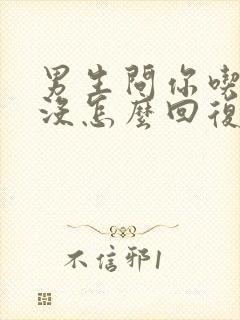 男生問你喫
沒怎麼回復
不信邪1